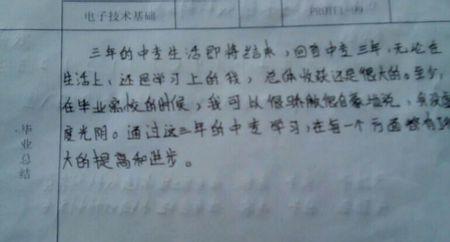 电子技术基础
三年的中专生活即将结束，回首中专三年，无论在
生活上、还是学习上的我，总体收获还是很大的。至少，
在毕业离校的时候，我可以很骄傲很自豪地说，我没虚
度光阴。通过这三年的中专学习，在每一个方面都有
大的提高和进步。
毕业总结